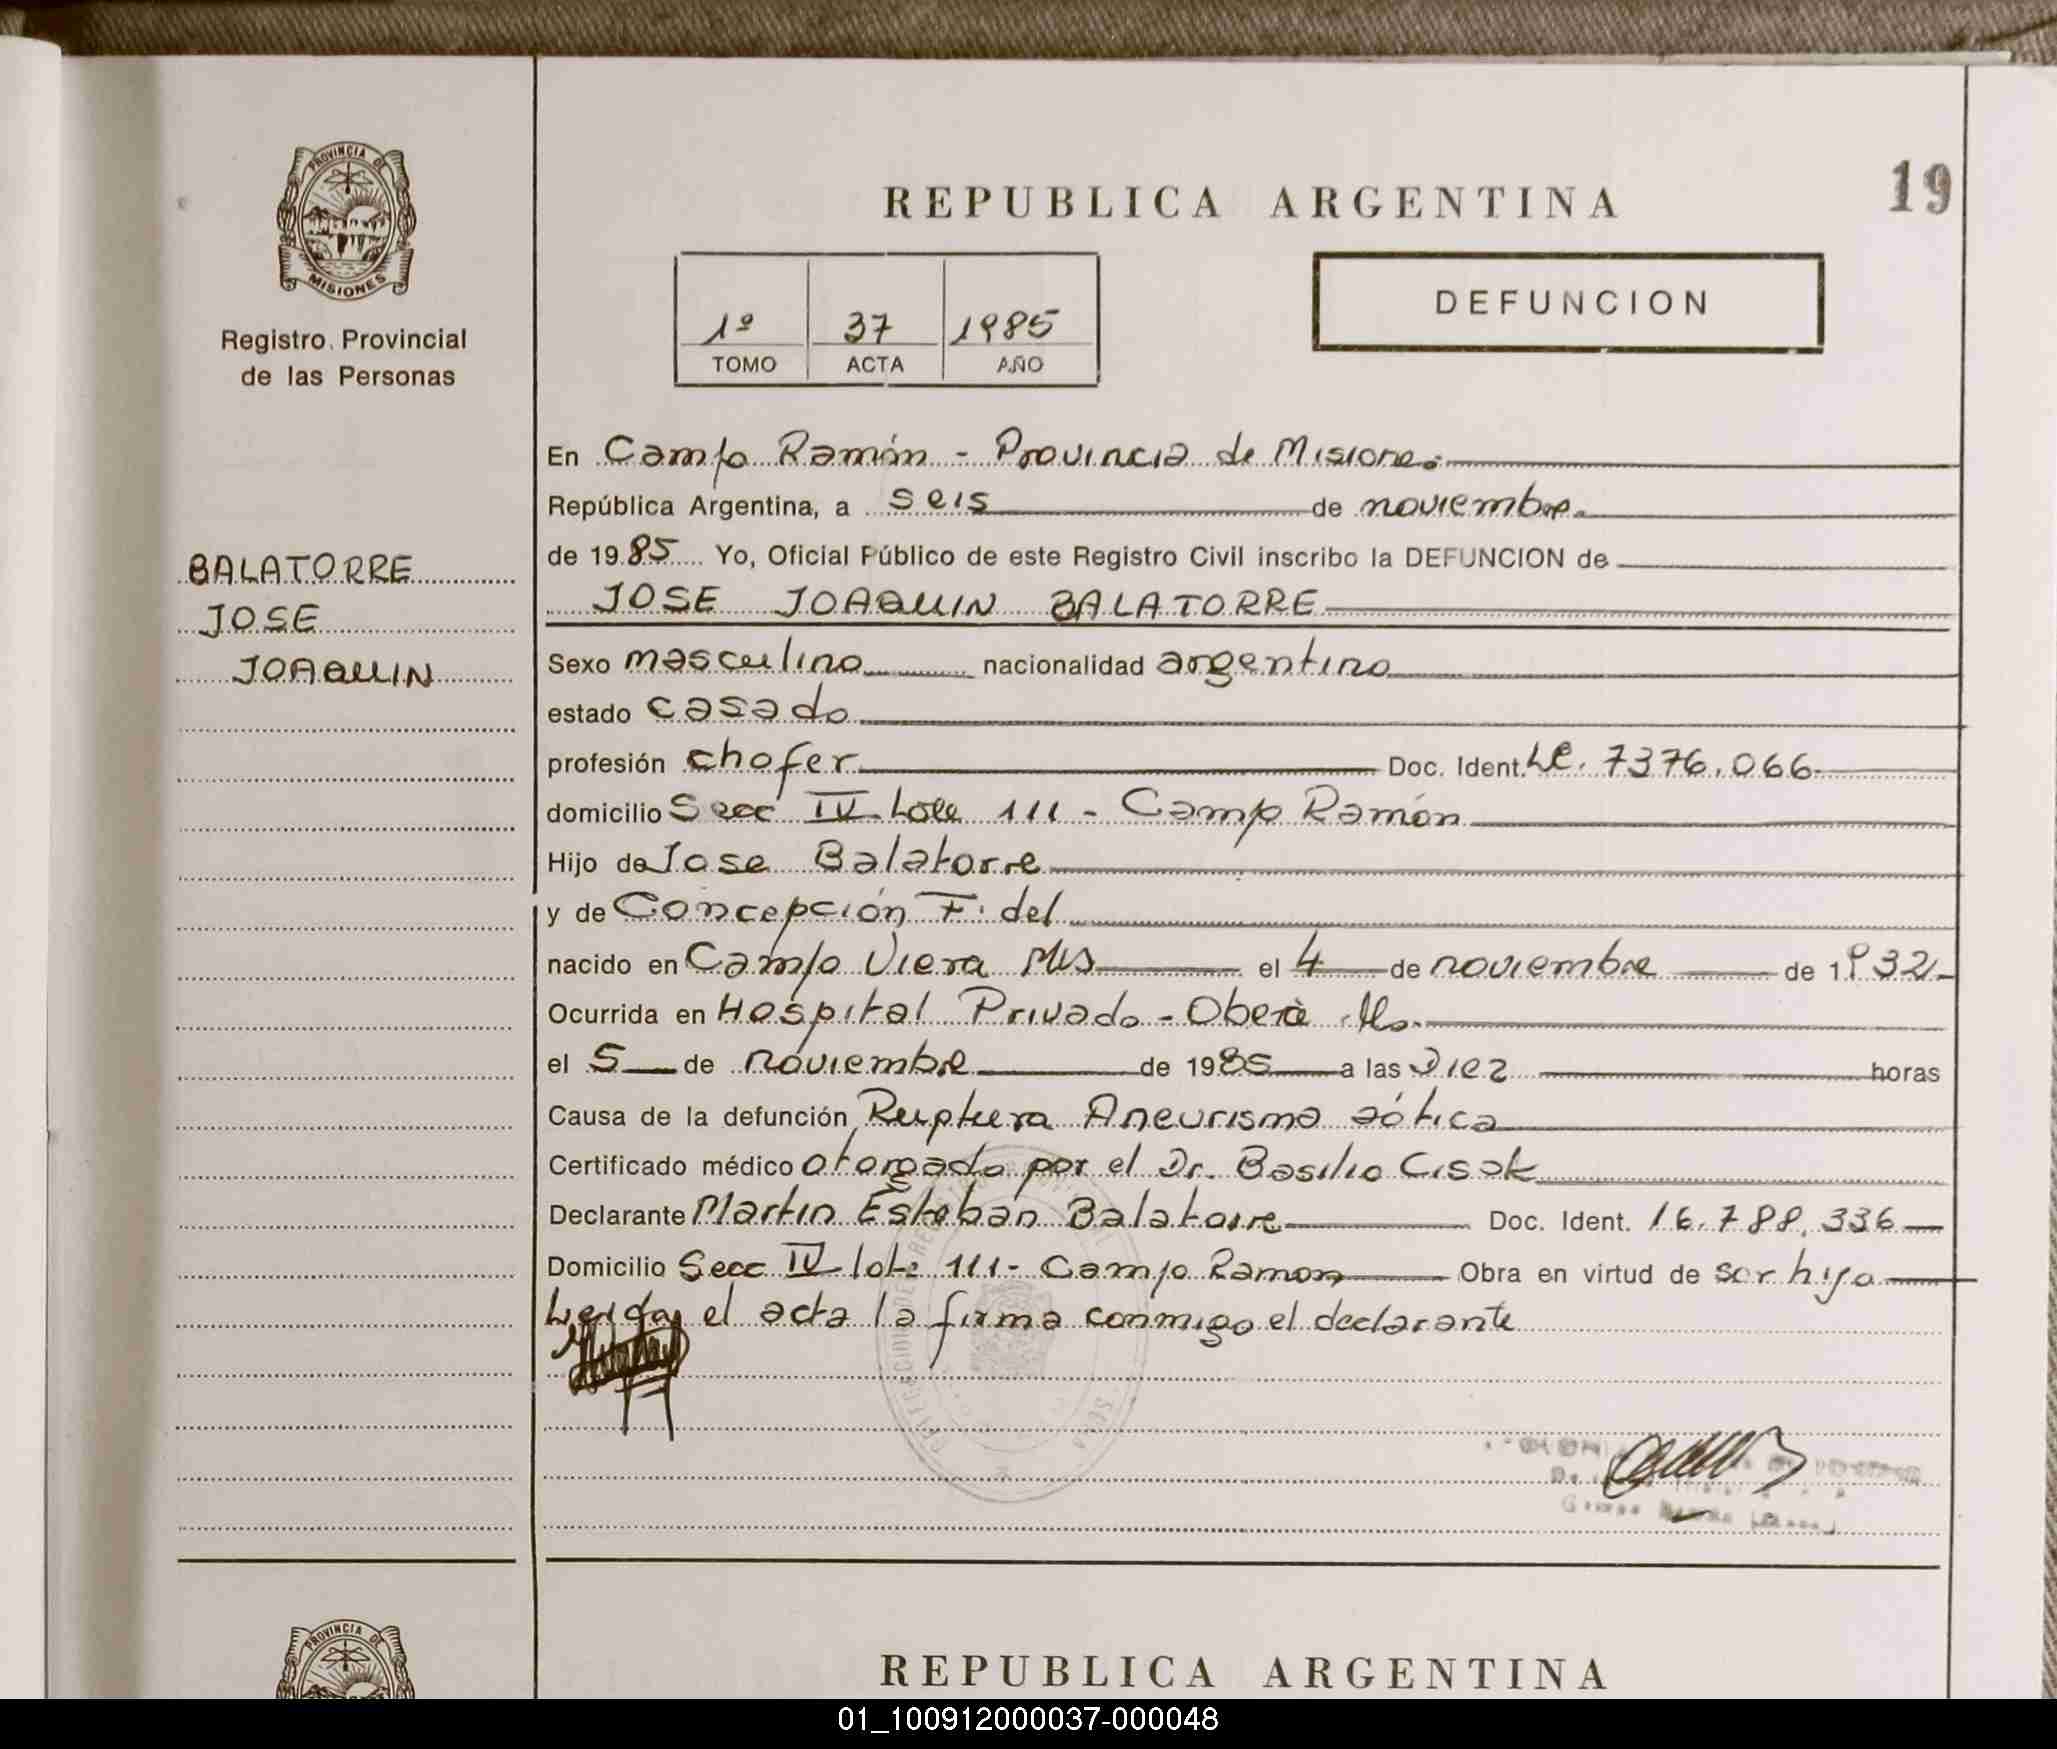 PROVINCIA DE
MISIONES
Registro Provincial
de las Personas
BALATORRE
JOSE
JOAQUIN
19
REPUBLICA ARGENTINA
1º 37 1985
TOMO ACTA AÑO
DEFUNCION
En Campo Ramón - Provincia de Misiones
República Argentina, a seis de noviembre
de 1985 Yo, Oficial Público de este Registro Civil inscribo la DEFUNCION de
JOSE JOAQUIN BALATORRE
Sexo masculino nacionalidad argentino
estado casado
profesión chofer Doc. Ident. LE. 7376.066
domicilio Secc IV Lote 111 - Campo Ramón
Hijo de Jose Balatorre
y de Concepción Fidel
nacido en Campo Viera Mis el 4 de noviembre de 1932
Ocurrida en Hospital Privado - Oberà
el 5 de noviembre de 1985 a las Diez horas
Causa de la defunción Ruptura Aneurisma aótica
Certificado médico otorgado por el Dr. Basilio Cisak
Declarante Martin Esteban Balatorre Doc. Ident. 16.788.336
Domicilio Secc IV lote 111 - Campo Ramon Obra en virtud de ser hijo
Leida el acta la firma conmigo el declarante
PROVINCIA DE
REPUBLICA ARGENTINA
01_100912000037-000048